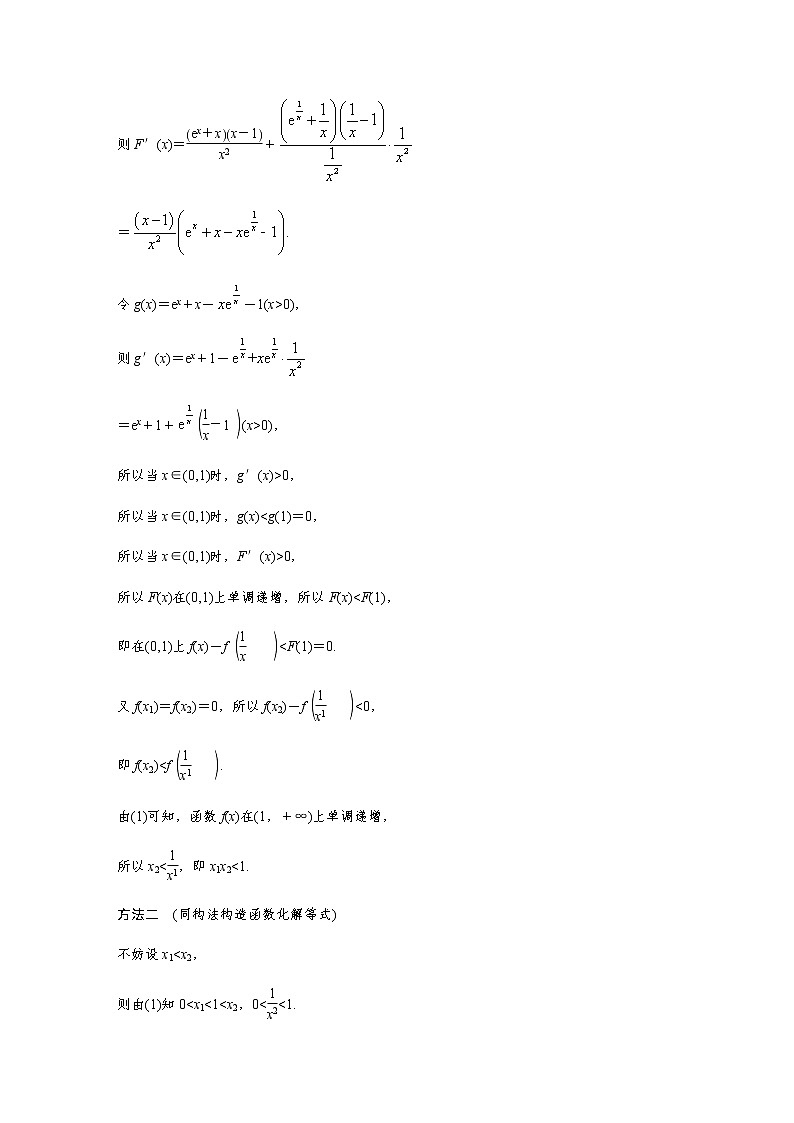 则 F′(x)=\frac{(e^x+x)(x-1)}{x^2}+\frac{\left(e^{\frac{1}{x}}+\frac{1}{x}\right)\left(\frac{1}{x}-1\right)}{\frac{1}{x^2}}·\frac{1}{x^2}
=\frac{(x-1)}{x^2}\left(e^x+x-xe^{\frac{1}{x}}-1\right).
令 g(x)=e^x+x-xe^{\frac{1}{x}}-1(x>0),
则 g′(x)=e^x+1-e^{\frac{1}{x}}+xe^{\frac{1}{x}}·\frac{1}{x^2}
=e^x+1+e^{\frac{1}{x}}\left(\frac{1}{x}-1\right)(x>0),
所以当 x∈(0,1)时，g′(x)>0，
所以当 x∈(0,1)时，g(x)<g(1)=0，
所以当 x∈(0,1)时，F′(x)>0，
所以 F(x)在(0,1)上单调递增，所以 F(x)<F(1)，
即在(0,1)上 f(x)-f\left(\frac{1}{x}\right)<F(1)=0.
又 f(x_1)=f(x_2)=0，所以 f(x_2)-f\left(\frac{1}{x1}\right)<0，
即 f(x_2)<f\left(\frac{1}{x1}\right).
由(1)可知，函数 f(x)在(1，+∞)上单调递增，
所以 x_2<\frac{1}{x1}，即 x_1x_2<1.
方法二　(同构法构造函数化解等式)
不妨设 x_1<x_2，
则由(1)知 0<x_1<1<x_2，0<\frac{1}{x2}<1.